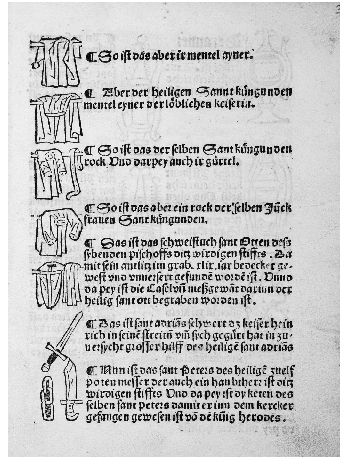 ¶ So ist das aber ir mentel ayner.
¶ Aber der heiligen Sannt küngunden
mentel eyner der löblichen keiserin.
¶ So ist das der selben Sant küngunden
rock Vnd darpey auch ir gürtel.
¶ So ist das aber ein rock der selben Jück
frauen Sant küngunden.
¶ Das ist das schweistuch sant Otten dess
sebenden pischoffs ditz wirdigen stiffts. Da
mit sein antlitz im grab. rlir. iar bedecket ge-
west vnd vnuersert gefunde wordē ist. Vnnd
da pey ist die Caselvn meßgewāt darinn der
heilig sant ott begraben worden ist.
¶ Das ist sant adriās schwert dz keiser hein
rich in seinē streitn vm̄ sich gegürt hat in zu-
versycht grosser hilff des heiligē sant adriās
¶ Nun ist das sant Peters des heiligē zwelf
poten messer der auch ein hantherr ist ditz
wirdigen stiffts Vnd da pey ist dy keten des
selben sant peters damit er inn dem kercker
gefangen gewesen ist vō dē küng herodes.